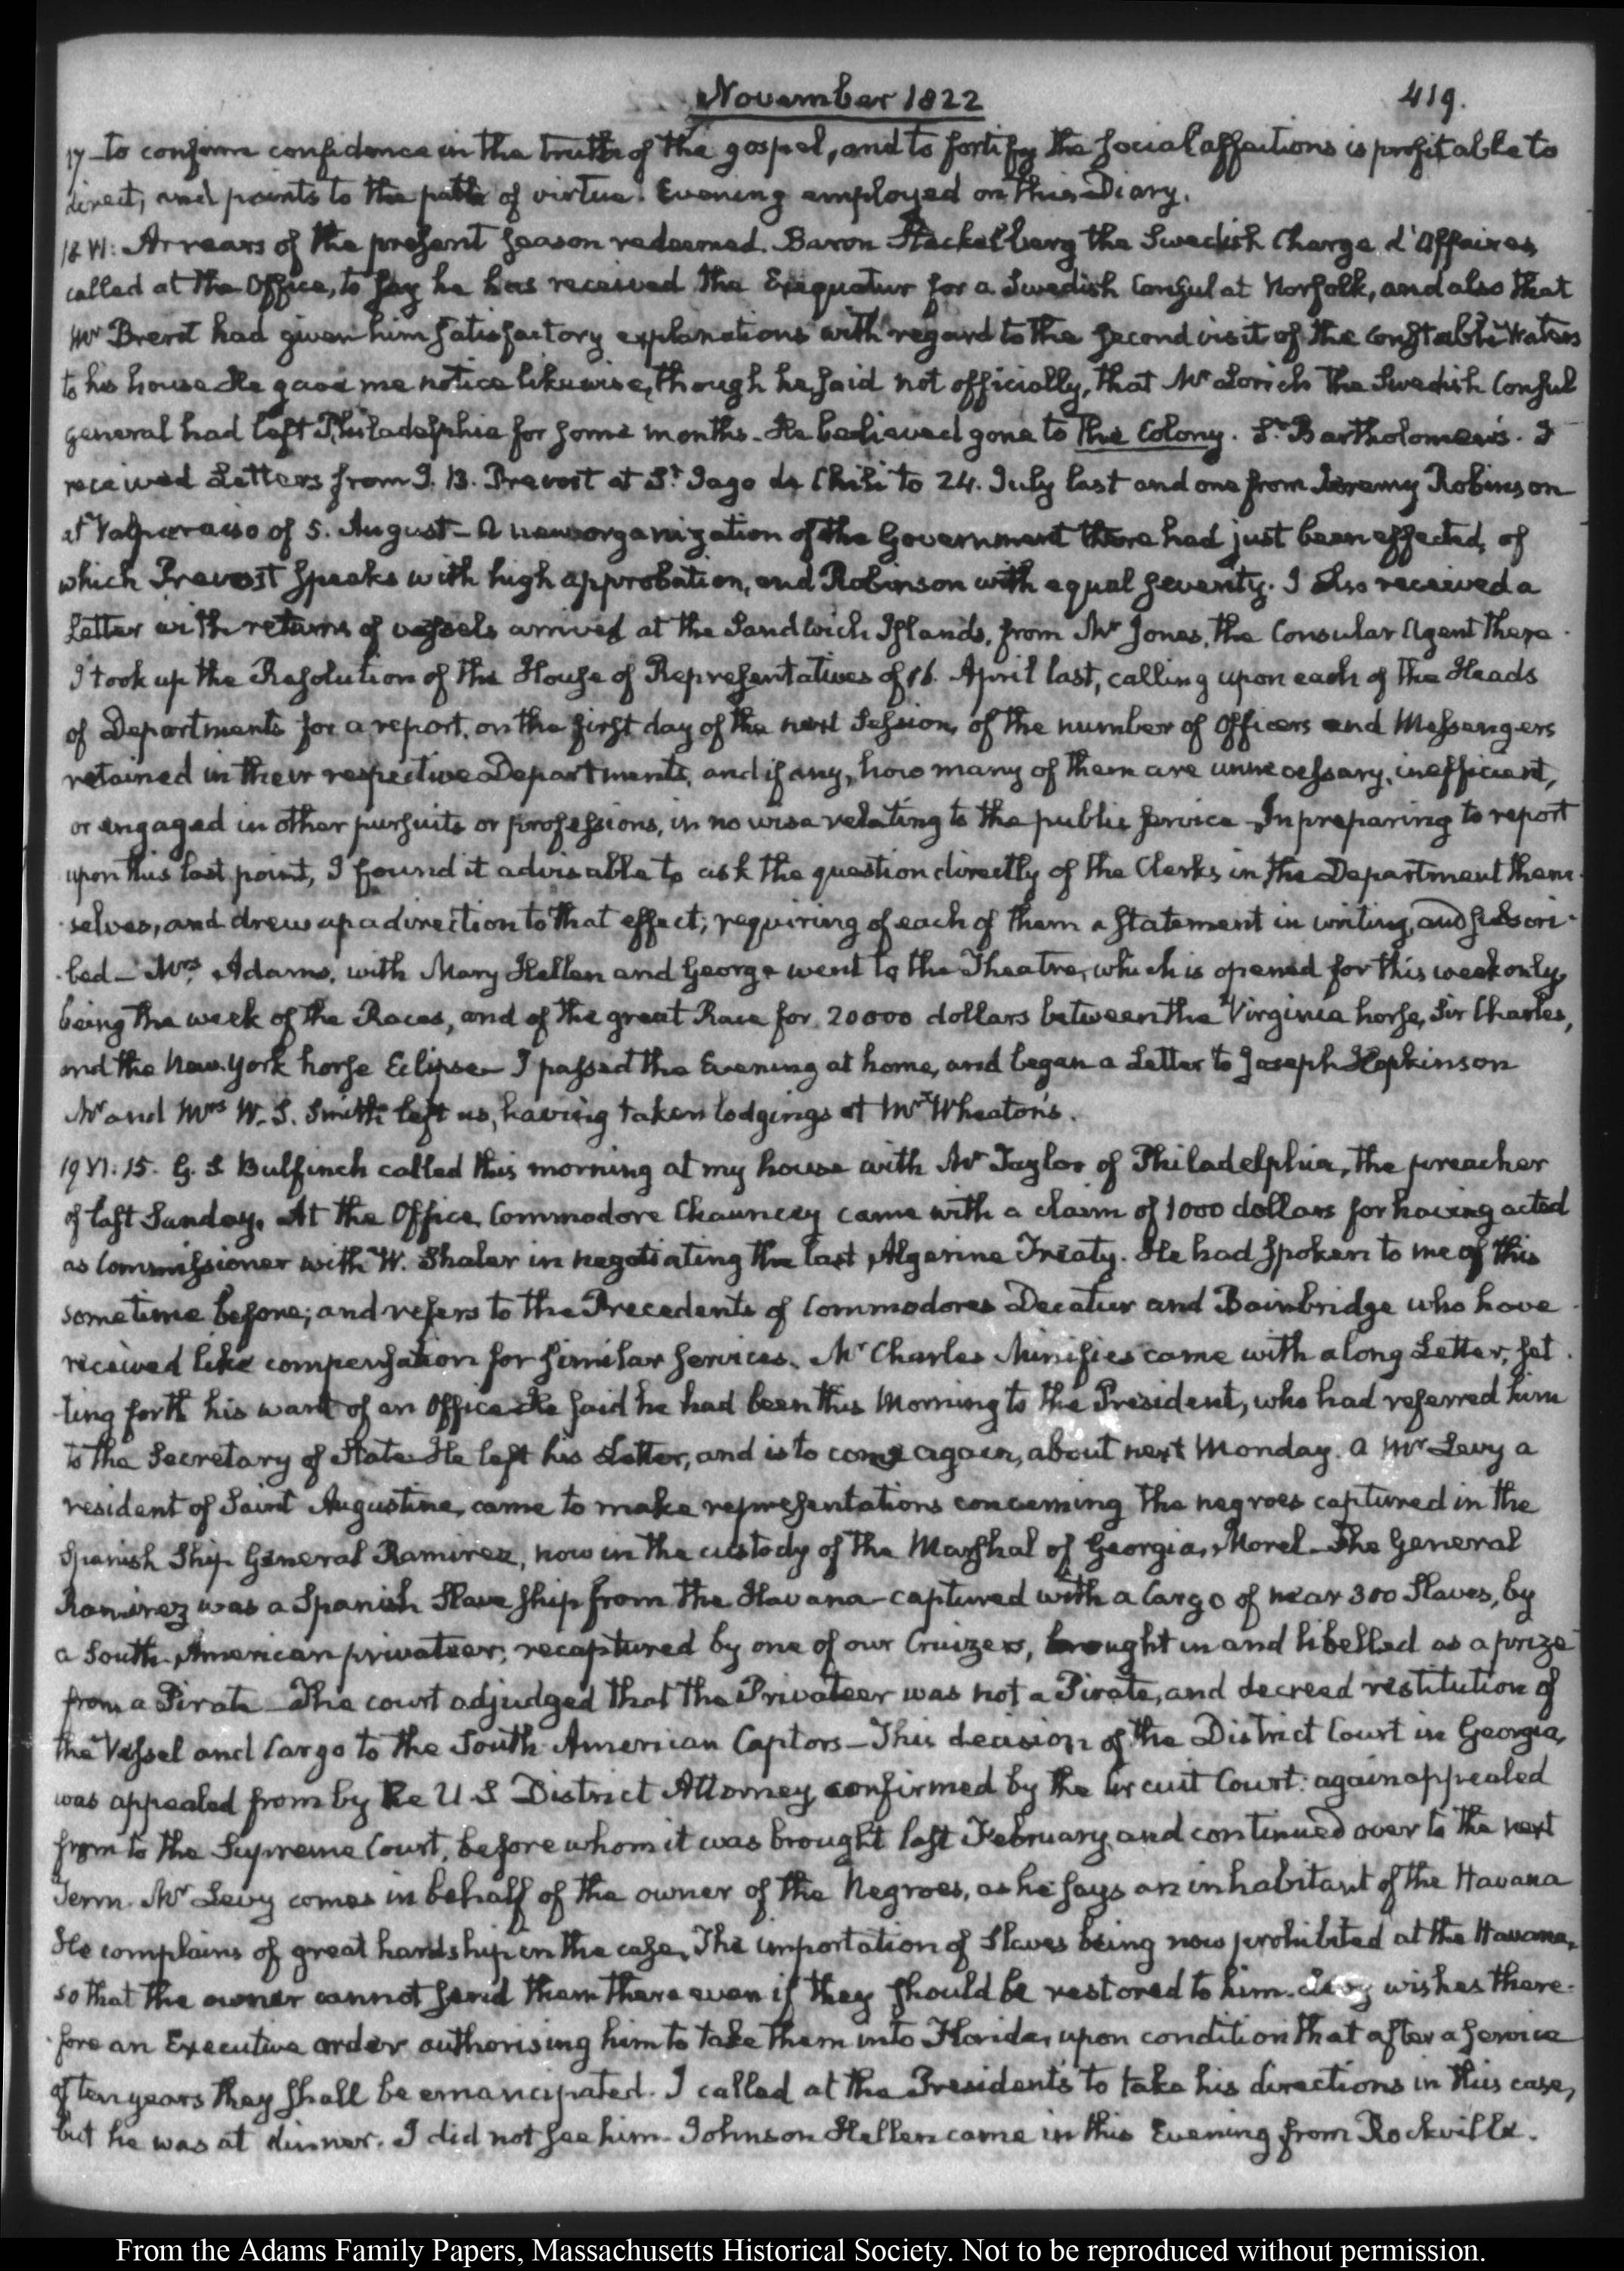 November 1822
419.
17 to confirm confidence in the truths of the gospel, and to fortify the social affections is profitable to
direct, and points to the path of virtue. Evening employed on this Diary.
18 VI: Arrears of the present season redeemed. Baron Stackelberg the Swedish Charge d'Affaires,
called at the Office, to say he has received the Exequatur for a Swedish Consul at Norfolk, and also that
Mr Brent had given him satisfactory explanations with regard to the second visit of the Constable Waters
to his house He gave me notice likewise, though he said not officially, that Mr Lorich the Swedish Consul
general had left Philadelphia for some months. He believed gone to The Colony. St. Bartholomew's. I
received Letters from J. B. Prevost at St. Jago de Chili to 24. July last and one from Jeremy Robinson
at Valparaiso of 5. August— A new organization of the Government there had just been effected, of
which Prevost speaks with high approbation, and Robinson with equal severity. I also received a
Letter with returns of vessels arrived at the Sandwich Islands, from Mr Jones, the Consular Agent there.
I took up the Resolution of the House of Representatives of 16. April last, calling upon each of the Heads
of Departments for a report, on the first day of the next Session, of the number of Officers and Messengers
retained in their respective Departments, and if any, how many of them are unnecessary, inefficient,
or engaged in other pursuits or professions, in no wise relating to the public service—In preparing to report
upon this last point, I found it advisable to ask the question directly of the Clerks in the Department them-
selves, and drew up a direction to that effect; requiring of each of them a statement in writing, and subscri-
bed— Mrs. Adams, with Mary Hellen and George went to the Theatre, which is opened for this week only,
being the week of the Races, and of the great Race for 20000 dollars between the Virginia horse, Sir Charles,
and the New York horse Eclipse— I passed the Evening at home, and began a Letter to Joseph Hopkinson
Mr and Mrs W. S. Smith left us, having taken lodgings at Mrs Wheaton's.
19 VI: 15. G. S. Bulfinch called this morning at my house with Mr Taylor of Philadelphia, the preacher
of last Sunday. At the Office, Commodore Chauncey came with a claim of 1000 dollars for having acted
as Commissioner with W. Shaler in negotiating the last Algerine Treaty. He had spoken to me of this
sometime before; and refers to the Precedents of Commodores Decatur and Bainbridge who have
received like compensation for similar services. Mr Charles Minifies came with a long Letter, set-
-ting forth his want of an Office He said he had been this Morning to the President, who had referred him
to the Secretary of State He left his Letter, and is to come again, about next Monday. A Mr Levy a
resident of Saint Augustine, came to make representations concerning the negroes captured in the
Spanish Ship General Ramirez, now in the custody of the Marshal of Georgia, Morel—The General
Ramirez was a Spanish Slave ship from the Havana—captured with a Cargo of near 300 Slaves, by
a South-American privateer; recaptured by one of our Cruizers, brought in and libelled as a prize
from a Pirate—The court adjudged that the Privateer was not a Pirate, and decreed restitution of
the Vessel and Cargo to the South American Captors—This decision of the District Court in Georgia,
was appealed from by the U S District Attorney, confirmed by the Circuit Court: again appealed
from to the Supreme Court, before whom it was brought last February, and continued over to the next
Term. Mr Levy comes in behalf of the owner of the Negroes, as he says an inhabitant of the Havana
He complains of great hardship in the case, The importation of Slaves being now prohibited at the Havana,
so that the owner cannot send them there even if they should be restored to him. Levy wishes there-
-fore an Executive order authorising him to take them into Florida, upon condition that after a service
of ten years they shall be emancipated. I called at the President's to take his directions in this case,
but he was at dinner. I did not see him. Johnson Hellen came in this Evening from Rockville.
From the Adams Family Papers, Massachusetts Historical Society. Not to be reproduced without permission.